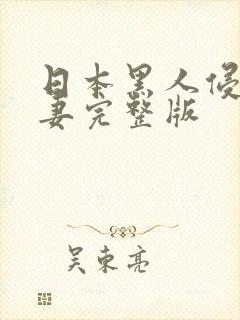 日本黑人侵
妻完整版
吴东亮